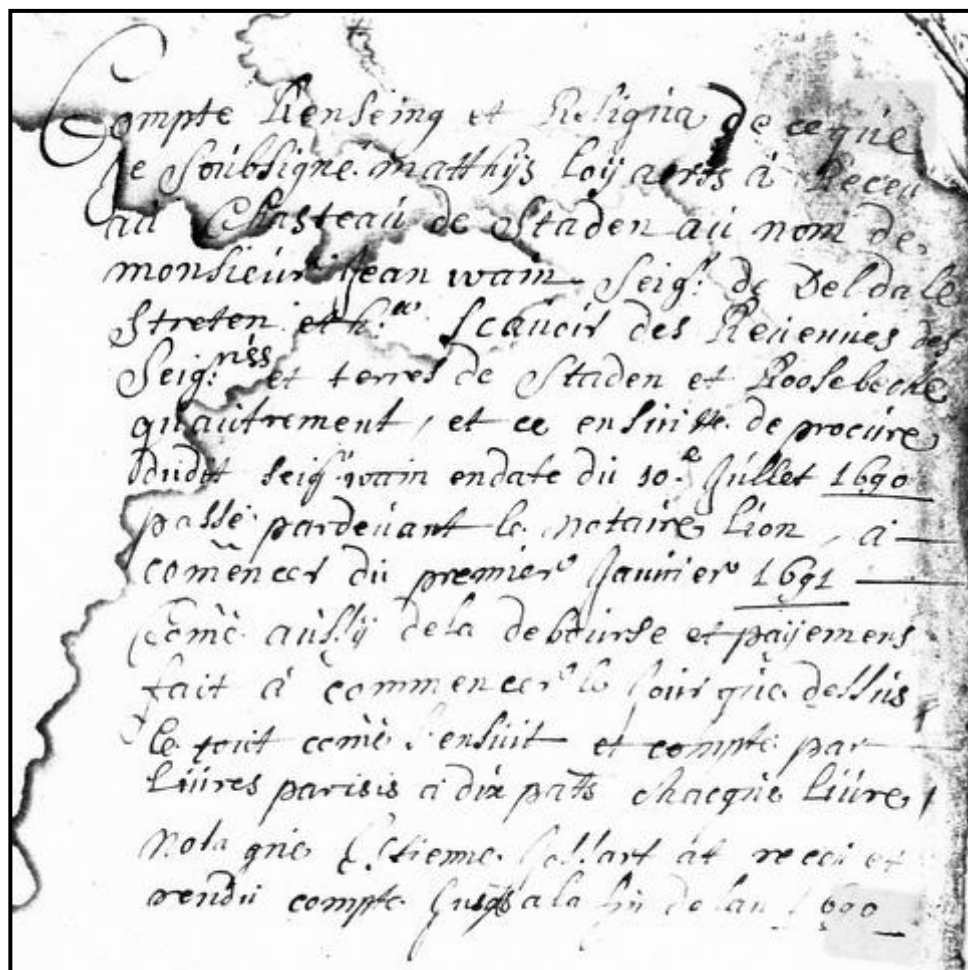 Compte Renseing et Reliqua de ce que
Je Soubsigné matthijs loijaerts a Receu
au Chasteau de Staden au nom de
monsieur Jean wain Seigr. de Deldale
Streten et Scavoir des Revennues des
Seig.rïes et terres de Staden et Roosebecke
qu'autrement, et ce ensuitte de procure
dudit seigr wain en date du 10.e Jullet 1690
passé pardevant le Notaire Lion, a
comencer du premier Janvier 1691
Comē aussij de la debourse et paijemens
fait a commencer le Jour que dessus
le tout comē s'ensuit et compte par
Livres parisis a dix patts chacque Livre,
Nota que Estienne at receu et
rendu compte Jusqs a la fin de lan 1690